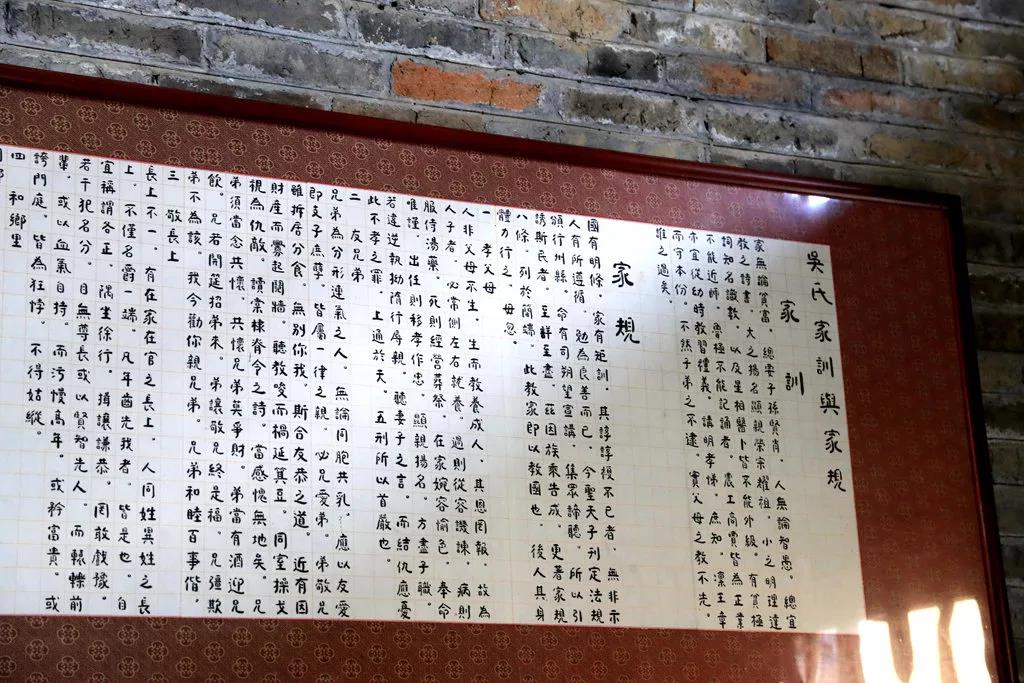 吳氏家訓與家規
家訓
家無論貧富，總要子孫賢肖，人無論智愚，總宜
教之詩書，大之揚名顯親榮宗耀祖，小之明理達
詞知名識數，以及星相醫卜皆不能外級，有質極
不能近師，魯極不能記誦者，農工商賈皆為正業
亦宜從幼時教習禮義，講明孝悌，庶知，凜王章
而守本份，不然子弟之不逮，實父母之教不先。
誰之過矣。
家規
國有明條，家有矩訓，其諄諄復不已者，無非示
人有所遵循，勉為良善而已，今聖天子刊定法規
頒行州縣，命有司朔望宣講，集眾諦聽，所以引
誘斯民者，至詳至盡，茲因族乘告成，更著家規
八條，列於簡端，此教家即以教國也，後人其身
體力行之，毋忽。
一 孝父母
人非父母不生，生而教養成人，其恩罔報，故為
人子者，必常側左右就養，過則從容諫諫，病則
服侍湯藥，死則經營葬祭，在家婉容愉色，奉命
唯謹，出任則移孝作忠，顯親揚名，方盡子職。
若違逆執拗隋行房親，聽妻子之言，而結仇應憂
此不孝之罪，上通於天，五刑所以首嚴也。
二 友兄弟
兄弟為分形連氣之人，無論同胞共乳，應以友愛
即支子庶孽，皆屬一律之親，必兄愛弟，弟敬兄
雖拆居分食，無別你我，斯合友恭之道，近有因
財產而釁起鬩牆，聽教唆而禍延箕豆，同室操戈
視為仇敵，讀棠棣脊令之詩，當感愧無地矣。兄
弟須當念共懷，共懷兄弟莫爭財。弟當有酒迎兄
飲。兄若開筵招弟來。弟讓敬兄終是福。兄彊欺
弟不為該，我今勸你親兄弟。兄弟和睦百事偕。
三 敬長上
長上不一，有在家在官之長上，人同姓異姓之長
上，不僅名爵一端，凡年齒先我者，皆是也。自
宜稱謂各正，隅坐徐行，揖讓謙恭。罔敢戲豫。
若干犯名分，目無尊長或以賢智先人，而轢轢前
輩，或以血氣自持，而污慢高年。或矜富貴，或
誇門庭，皆為狂悖，不得姑縱。
四 和鄉里